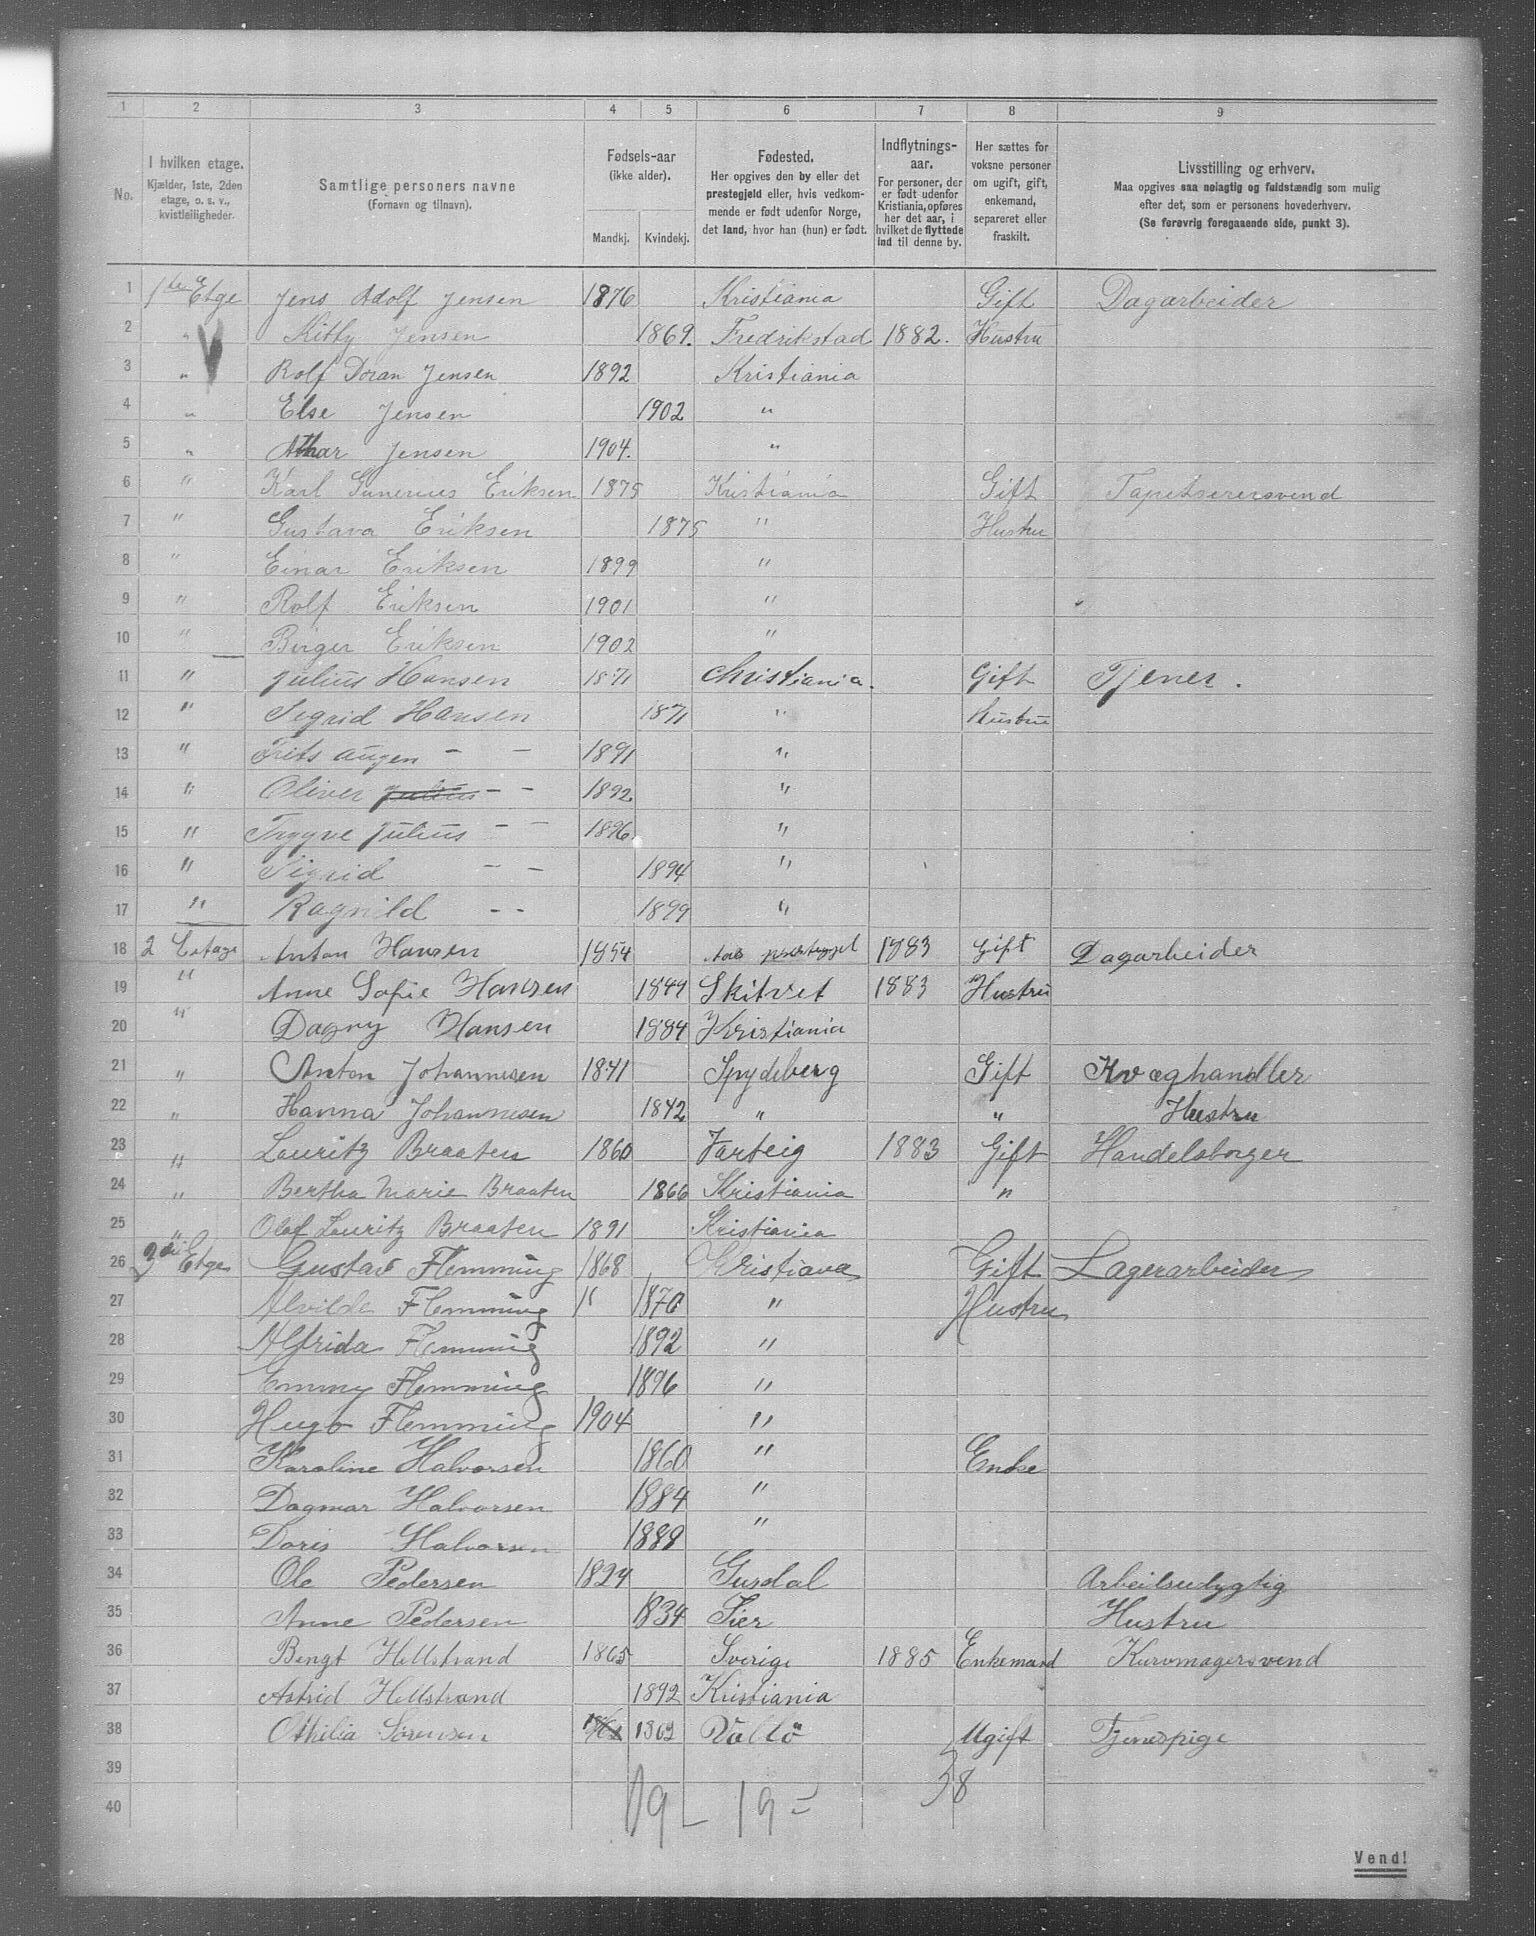 1 2 3 4 5 6 7 8 9
No. I hvilken etage. Kjælder, 1ste, 2den etage, o. s. v., kvistleiligheder. Samtlige personers navne (Fornavn og tilnavn). Fødsels-aar (ikke alder). Mandkj. Kvindekj. Fødested. Her opgives den by eller det prestegjeld eller, hvis vedkommende er født udenfor Norge, det land, hvor han (hun) er født. Indflytnings-aar. For personer, der er født udenfor Kristiania, opføres her det aar, i hvilket de flyttede ind til denne by. Her sættes for voksne personer om ugift, gift, enkemand, separeret eller fraskilt. Livsstilling og erhverv. Maa opgives saa nøiagtig og fuldstændig som mulig efter det, som er personens hovederhverv. (Se forøvrig foregaaende side, punkt 3).
1 1ste Etge Jens Adolf Jensen 1876 Kristiania Gift Dagarbeider
2 " Kitty Jensen 1869. Fredrikstad 1882. Hustru
3 " Rolf Doran Jensen 1892 Kristiania
4 " Else Jensen 1902 "
5 " Jensen 1904. "
6 " Karl Gunerius Eriksen 1875 Kristiania Gift Tapetserersvend
7 " Gustava Eriksen 1875 " Hustru
8 " Einar Eriksen 1899 "
9 " Rolf Eriksen 1901 "
10 " Birger Eriksen 1902 "
11 " Julius Hansen 1871 Christiania. Gift Tjener.
12 " Sigrid Hansen 1871 " Hustru
13 " Frits Augen - - 1891 "
14 " Oliver Julius - - 1892 "
15 " Trygve Julius - - 1896 "
16 " Sigrid - - 1894 "
17 " Ragnild - - 1899 "
18 2 Etage Anton Hansen 1854 1883 Gift Dagarbeider
19 " Anne Sofie Hansen 1849 Skitvet 1883 Hustru
20 " Dagny Hansen 1884 Kristiania
21 " Anton Johannesen 1841 Spydeberg Gift Kvæghandler
22 " Hanna Johannesen 1842 " " Hustru
23 " Lauritz Braaten 1860 Varteig 1883 Gift Handelsborger
24 " Bertha Marie Braaten 1866 Kristiania "
25 " Olaf Lauritz Braaten 1891 Kristiania
26 3die Etge Gustav Flemming 1868 Kristiana Gift Lagerarbeider
27 Alvilde Flemming " 1870 " Hustru
28 Alfrida Flemming 1892 "
29 Emmy Flemming 1896 "
30 Hugo Flemming 1904 "
31 Karoline Halvorsen 1860 " Enke
32 Dagmar Halvorsen 1884 "
33 Doris Halvorsen 1889 "
34 Ole Pedersen 1824 Gusdal Arbeilsudygtig
35 Anne Pedersen 1834 Lier Hustru
36 Bengt Hellstrand 1865 Sverige 1885 Enkemand Kurvmagersvend
37 Astrid Hellstrand 1892 Kristiania
38 Othilia Sørensen 1862 Valló Ugift Tjenespige
39 38
40 19 - 19 =
Vend!